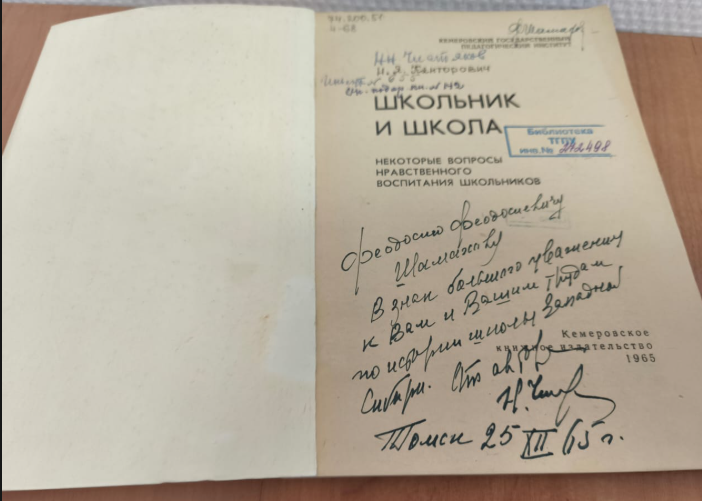 74.200.51
Ч-68
КЕМЕРОВСКИЙ ГОСУДАРСТВЕННЫЙ
ПЕДАГОГИЧЕСКИЙ ИНСТИТУТ
Н.Н. Чистяков
И. Я. Канторович
ШКОЛЬНИК
И ШКОЛА
Библиотека
ТГПУ
инв.№ 212498
НЕКОТОРЫЕ ВОПРОСЫ
НРАВСТВЕННОГО
ВОСПИТАНИЯ ШКОЛЬНИКОВ
Феодосию Феодосиевичу
Шамахову
В знак большого уважения
к Вам и Вашим трудам
по истории школы Западной
Сибири. От автора
Кемеровское
книжное издательство
1965
Томск 25 XII 65 г.